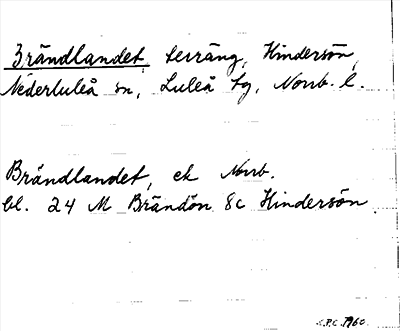 Brändlandet, terräng, Hindersön,
Nederluleå sn, Luleå tg, Norrb. l.
Brändlandet, ek Norrb.
bl. 24 M Brändön 8c Hindersön
1960